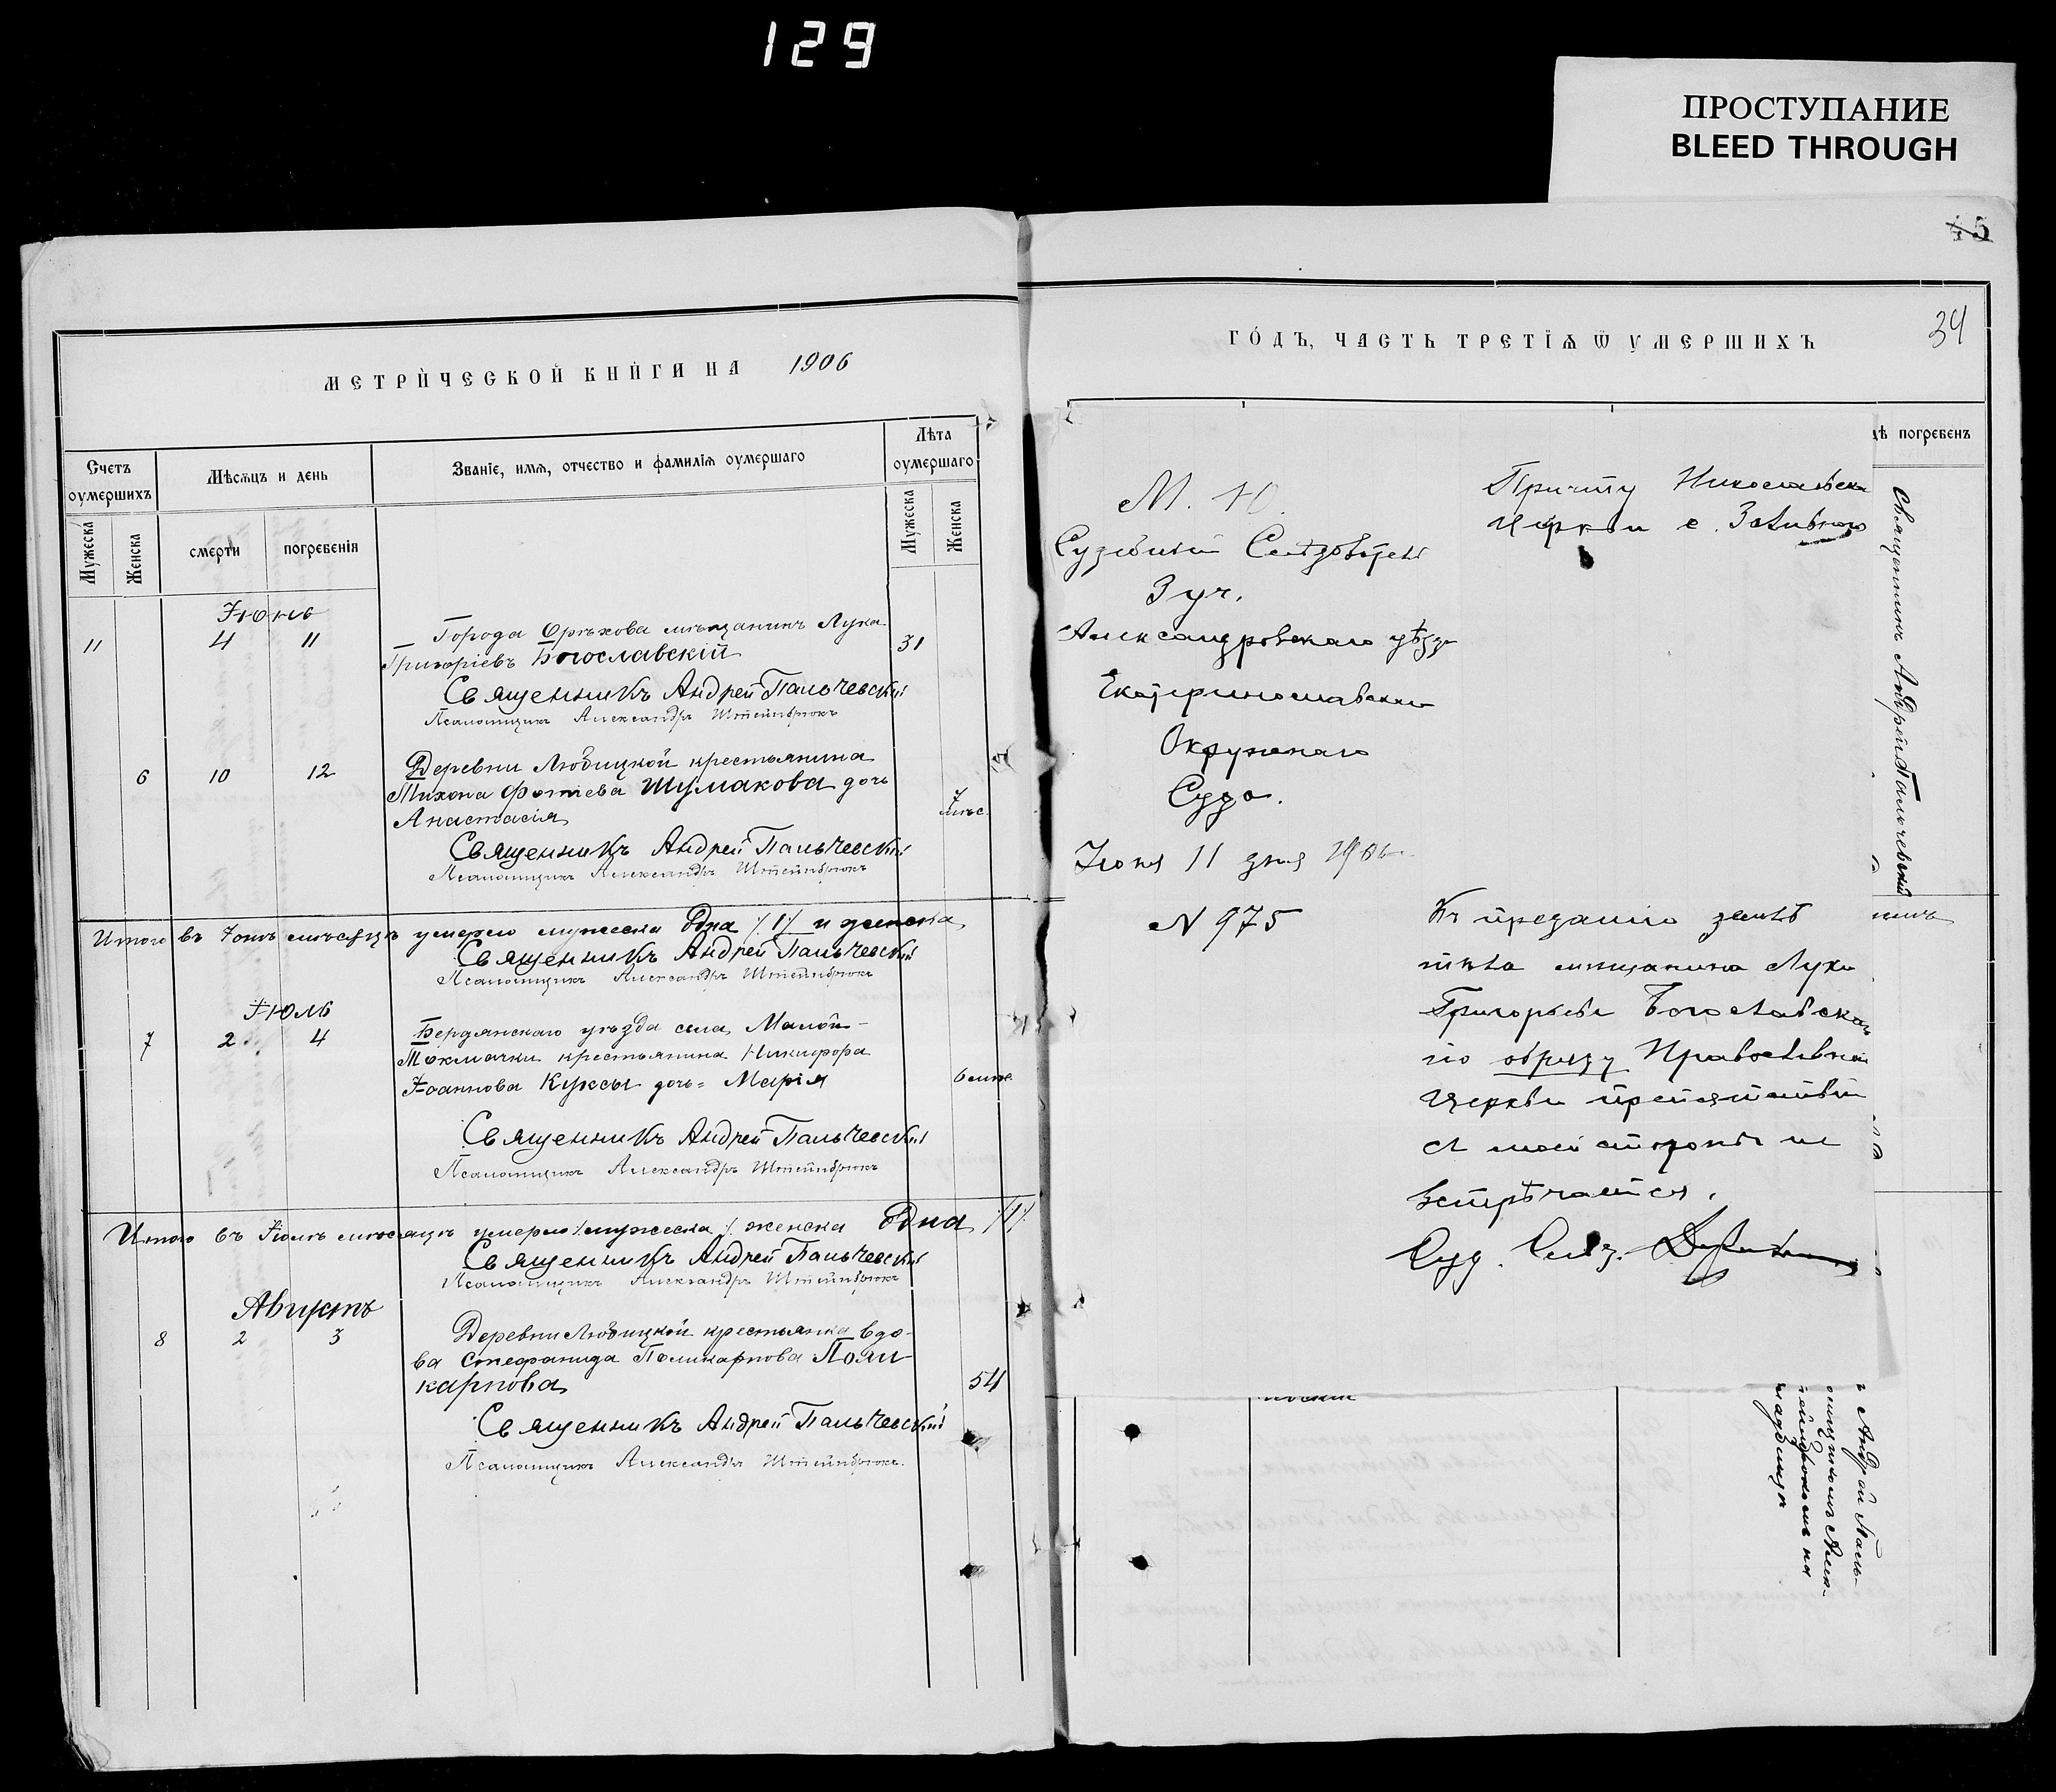 129
ПРОСТУПАНИЕ
BLEED THROUGH
45
34
МЕТРИ́ЧЕСКОЙ КНИ́ГИ НА 1906
Счетъ оумершихъ
Мужеска
Женска
Мѣсѧцъ и день
смерти
погребенія
Званіе, имѧ, отчество и фамиліѧ оумершаго
Лѣта оумершаго
Мужеска
Женска
Іюнь
11 4 11 Города Орѣхова мѣщанинъ Лука 31
Григоріевъ Богославскій
Священникъ Андрей Пальчевскій
Псаломщикъ Александръ Штейнбрюкъ
6 10 12 Деревни Любицкой крестьянина
Тихона Фотіева Шумакова дочь 7 мѣс.
Анастасія
Священникъ Андрей Пальчевскій
Псаломщикъ Александръ Штейнбрюкъ
Итого въ Іюнѣ мѣсяцѣ умерло мужеска Одна /1/ и женска
Священникъ Андрей Пальчевскій
Псаломщикъ Александръ Штейнбрюкъ
Іюль
7 2 4 Бердянскаго уѣзда села Малой-
Токмачки крестьянина Никифора
Іоаннова Куксы дочь = Марія 6 мѣс.
Священникъ Андрей Пальчевскій
Псаломщикъ Александръ Штейнбрюкъ
Итого въ Іюлѣ мѣсяцѣ умерло мужеска /. женска Одна /1/
Священникъ Андрей Пальчевскій
Псаломщикъ Александръ Штейнбрюкъ
Августъ
8 2 3 Деревни Любицкой крестьянка вдо-
ва Стефанида Поликарпова Поли-
карпова 54
Священникъ Андрей Пальчевскій
Псаломщикъ Александръ Штейнбрюкъ.
ГО́ДЪ, ЧАСТЬ ТРЕТІѦ Ѿ УМЕРШИХЪ
дѣ погребенъ
М. Ю.
Судебный Слѣдователь
3 уч.
Александровскаго уѣзда
Екатеринославскаго
Окружнаго
Суда.
Іюня 11 дня 1906
N 975
Причту Николаевской
Церкви с. Заливного
Къ преданію землѣ
тѣла мѣщанина Луки
Григорьева Богославскаго
по обряду Православной
Церкви препятствій
съ моей стороны не
встрѣчается.
Суд. Слѣд.
Священникъ Андрей Пальчевскій
никъ
ъ Андрей Паль-
омщикомъ Алек-
тейнбрюкомъ на
кладбищѣ